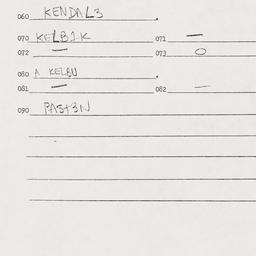 060 KENDAL3
070 KELB1K 071 —
072 — 073 O
080 A KELBU
081 — 082 —
090 PAST3N